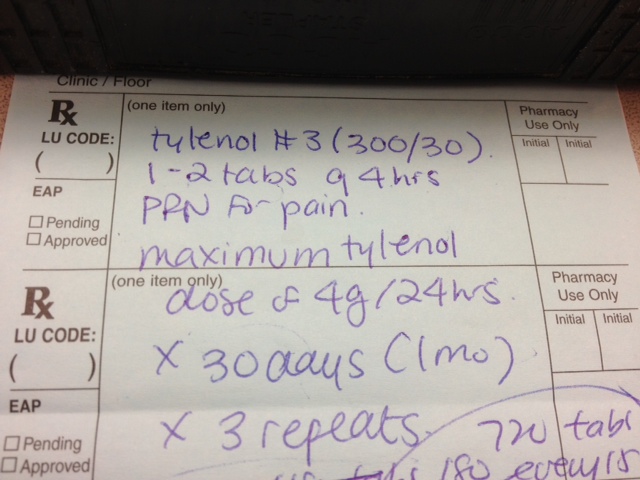 Clinic / Floor
Rx (one item only) Pharmacy Use Only
LU CODE: Initial Initial
( )
EAP
Pending
Approved
tylenol #3 (300/30).
1-2 tabs q 4hrs
PRN for pain.
maximum tylenol
Rx (one item only) Pharmacy Use Only
LU CODE: Initial Initial
( )
EAP
Pending
Approved
dose of 4g/24hrs.
x 30 days (1mo)
x 3 repeats. 720 tabs
180 every 15